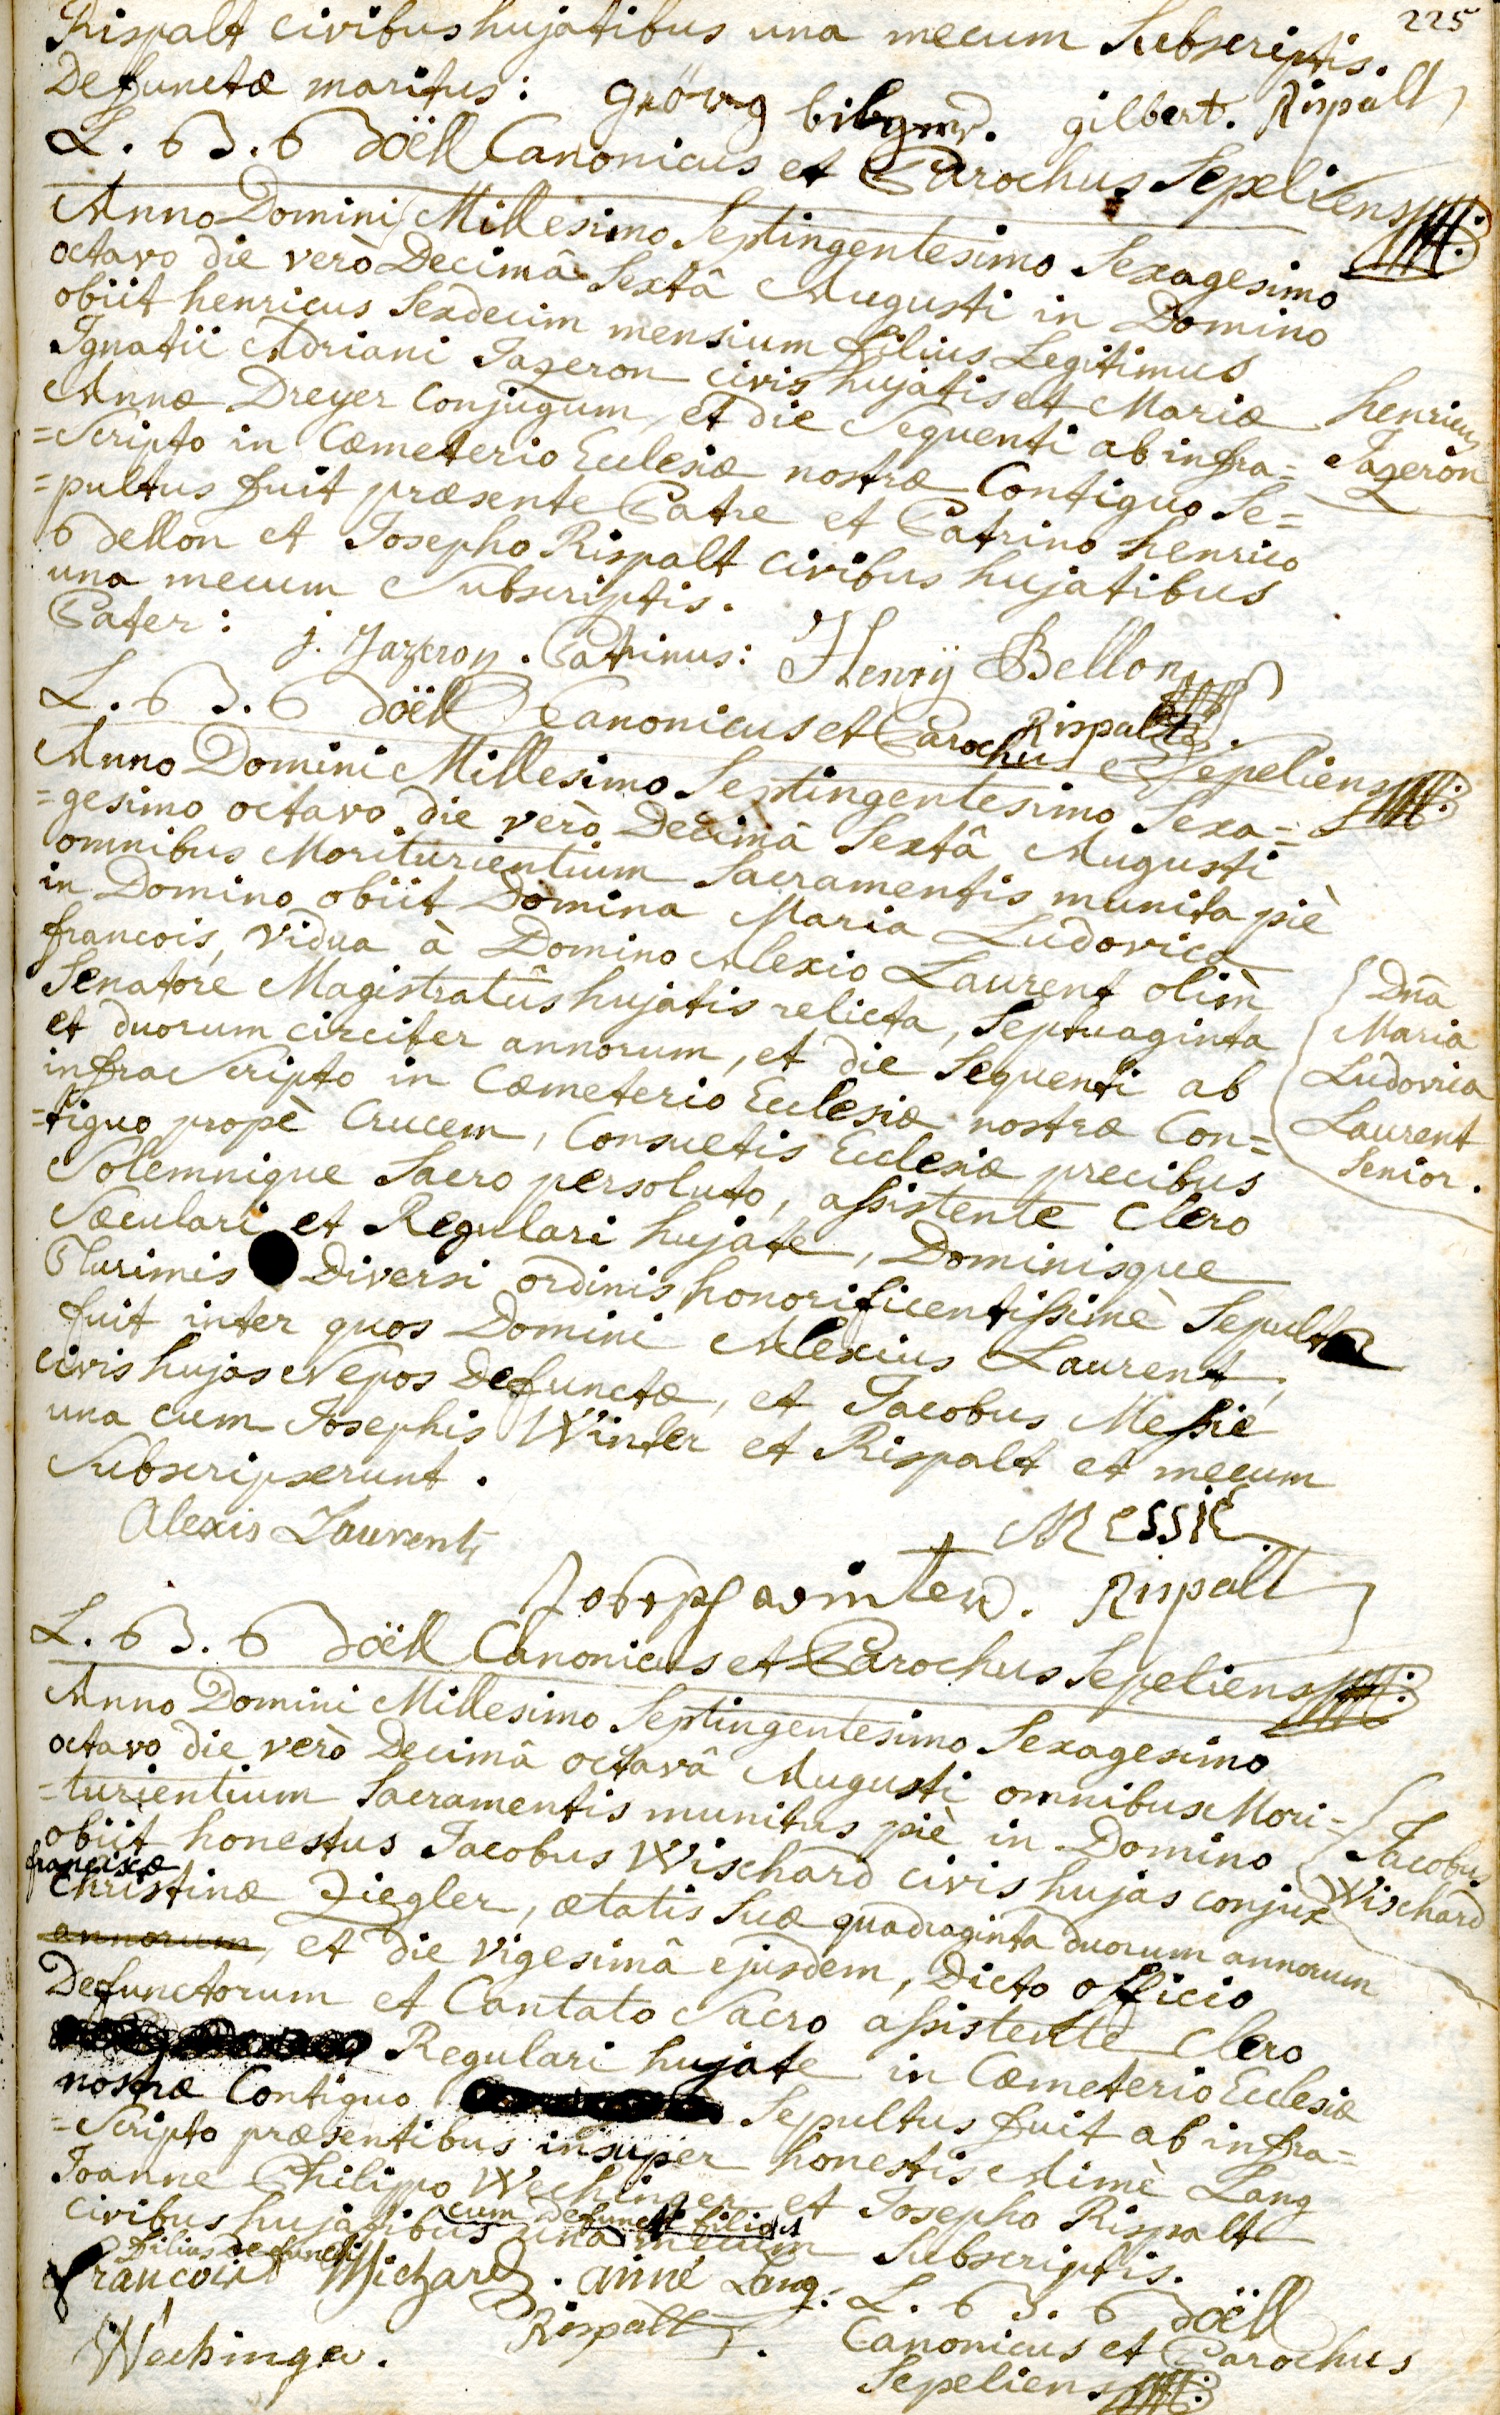 225
Rispalt civibus hujatibus una mecum Subscriptis.
Defunctæ maritus: Gröurg gilbert. Rispalt
L. B. B Doëll Canonicus et Parochus Sepeliens
Anno Domini Millesimo Septingentesimo Sexagesimo
octavo die verò Decimâ Sextâ Augusti in Domino
obiit henricus Sexdecim mensium filius Legitimus
Ignatii Adriani Jazeron civis hujatis et Mariæ
Annæ Dreyer Conjugum, et die Sequenti ab infra=
=Scripto in Cæmeterio Ecclesiæ nostræ Contiguo Se=
=pultus fuit præsente Patre et Patrino henrico
Bellon et Josepho Rispalt civibus hujatibus
una mecum Subscriptis.
henricus
Jazeron
Pater: j. Jazeron. Patrinus: Henrÿ Bellon
Rispalt
L. B. B Doëll Canonicus et Parochus Sepeliens
Anno Domini Millesimo Septingentesimo Sexa=
=gesimo octavo die verò Decimâ Sextâ Augusti
omnibus Moriturientium Sacramentis munita piè
in Domino obiit Domina Maria Ludovica
francois, vidua à Domino Alexio Laurent olim
Senatore Magistratûs hujatis relicta, Septuaginta
et duorum circiter annorum, et die Sequenti ab
infra Scripto in Cæmeterio Ecclesiæ nostræ Con=
=tiguo propè Crucem, Consuetis Ecclesiæ precibus
Solemnique Sacro persoluto, assistente Clero
Sæculari et Regulari hujate, Dominisque
Plurimis Diversi ordinis honorificentissimè Sepulta
fuit inter quos Domini Alexius Laurent,
civis hujas Nepos Defunctæ, et Jacobus Messie
una cum Josephis Winter et Rispalt et mecum
Subscripserunt.
Dña
Maria
Ludovica
Laurent
Senior.
Alexis Laurent
MESSIE
Joseph winter. Rispalt
L. B. B Doëll Canonicus et Parochus Sepeliens
Anno Domini Millesimo Septingentesimo Sexagesimo
octavo die verò Decimâ octavâ Augusti omnibus Mori=
=turientium Sacramentis munitus piè in Domino
obiit honestus Jacobus Wischard civis hujas conjux
franciscæ
Christinæ Ziegler, ætatis Suæ quadraginta duorum annorum
annorum, et die vigesimâ ejusdem, Dicto officio
Defunctorum et Cantato Sacro assistente Clero
Regulari hujate in Cæmeterio Ecclesiæ
nostræ Contiguo Sepultus fuit ab infra=
=Scripto præsentibus insuper honestis Aimè Lang
Joanne Philippo Wechinger et Josepho Rispalt
cum Defuncti filio
civibus hujatibus una mecum Subscriptis.
Jacobus
Wischard
Filius defuncti
francois Wichard. aimé Lang.
L. B. B Doëll
Rispalt.
Canonicus et Parochus
Wechinger.
Sepeliens